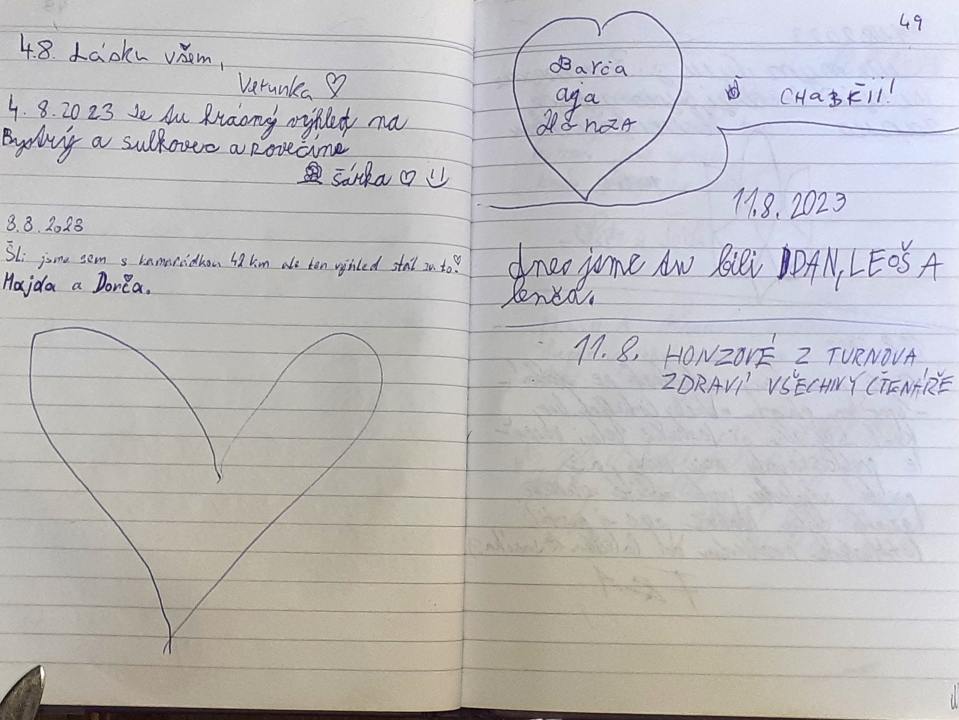 4.8. Lásku všem,
Verunka ♡
4. 8. 2023 Je tu krásný výhled na
Bystrý a sulkovec a rovečine
Šárka ♡
8.8.2023
Šli jsme sem s kamarádkou 42 km ale ten výhled stál za to!
Majda a Dorča.
49
Barča
aja
HoNzA
CHaBŘII!
11.8. 2023
dnes jsme tu bili DAN, LEOŠ A
lenča.
11.8. HONZOVÉ Z TURNOVA
ZDRAVÍ VŠECHNY ČTENÁŘE